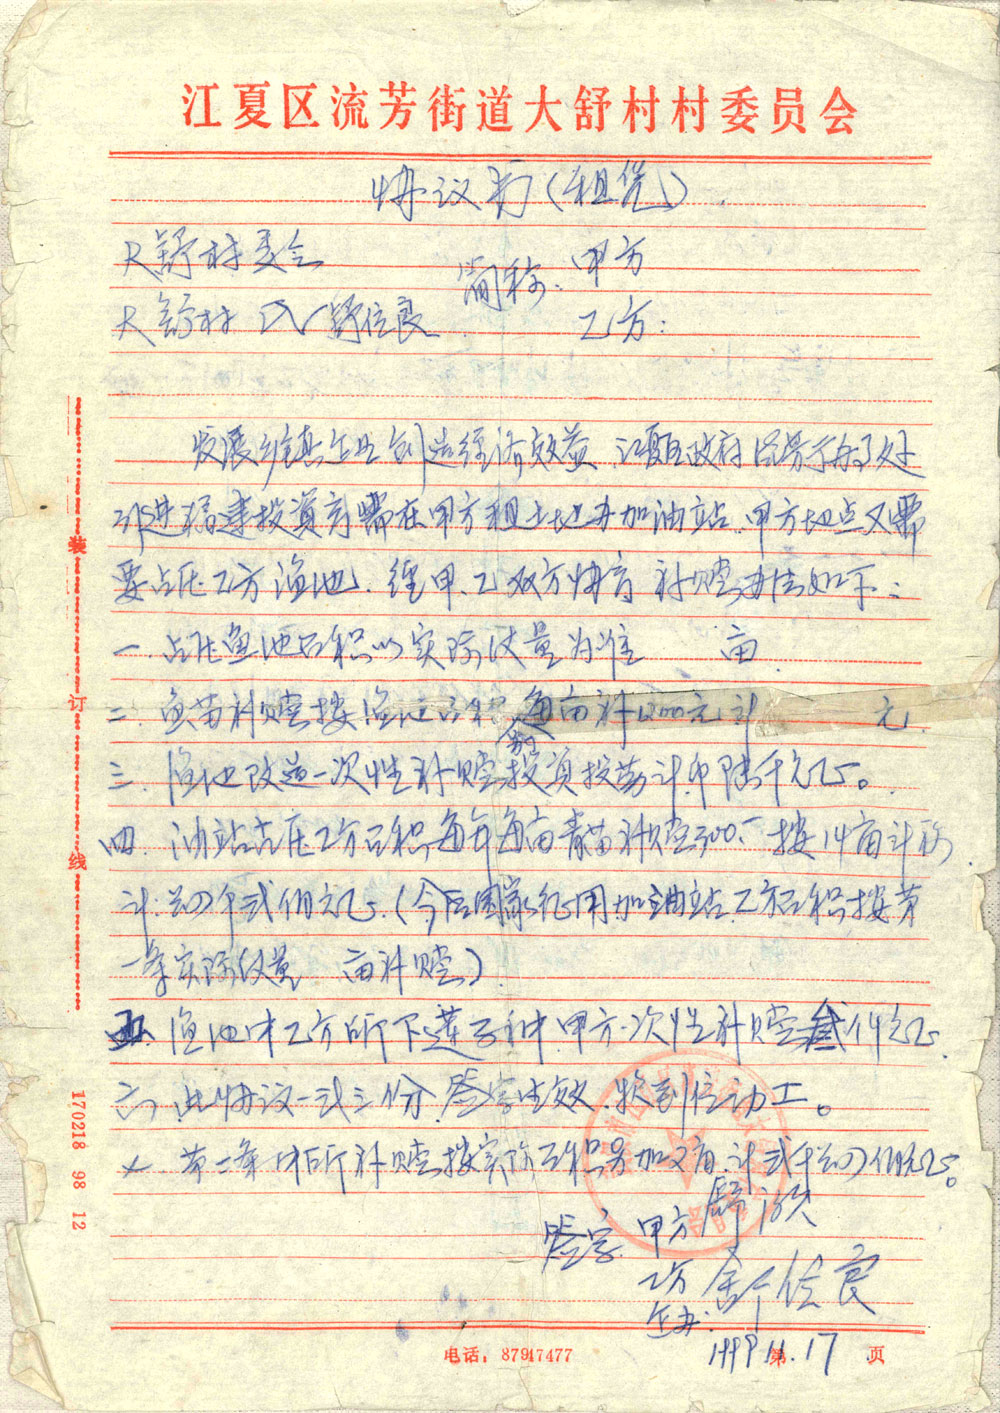 江夏区流芳街道大舒村村委员会
协议书(租凭)
大舒村委会 简称: 甲方
大舒村民 舒信良 乙方:
发展乡镇企业创造经济效益、江夏区政府
引进搭建投资商需在甲方租土地办加油站,甲方地点又需
要占压乙方渔池、经甲、乙双方协商 补赔办法如下:
一、占压鱼池面积以实际丈量为准 亩
二、鱼苗补赔按渔池面积 每亩补1200元计 元
三、渔池改造一次性补赔投资 计币陆千元正。
四、油站占压乙方面积每年每亩青苗补赔300、按14亩计算
计: 肆千弍佰元正、(今后国家征用加油站、乙方面积按第
一条实际丈量 亩补赔)
五、渔池中乙方所下莲子种甲方一次性补赔叁佰元正
六、此协议一式三份、签字生效、换到位动工。
第二条中所补赔按实际面积另加 亩、计弍千肆佰元正。
签字 甲方 舒
乙方 舒信良
企办:
1999.11.17
第 页
电话: 87917477
装
订
线
170218 98 12